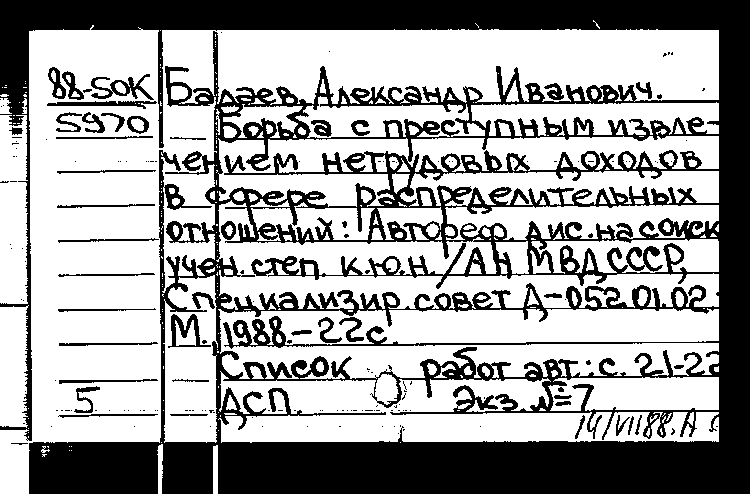 88-50К Бадаев, Александр Иванович.
5970 Борьба с преступным извле-
чением нетрудовых доходов
в сфере распределительных
отношений: Автореф. дис. на соиск
учен. степ. к.ю.н. /АН МВД СССР,
Специализир. совет Д-052.01.02.-
М., 1988.-22с.
Список работ авт.: с. 21-22
5 ДСП. Экз. №=7
14/VII88. А